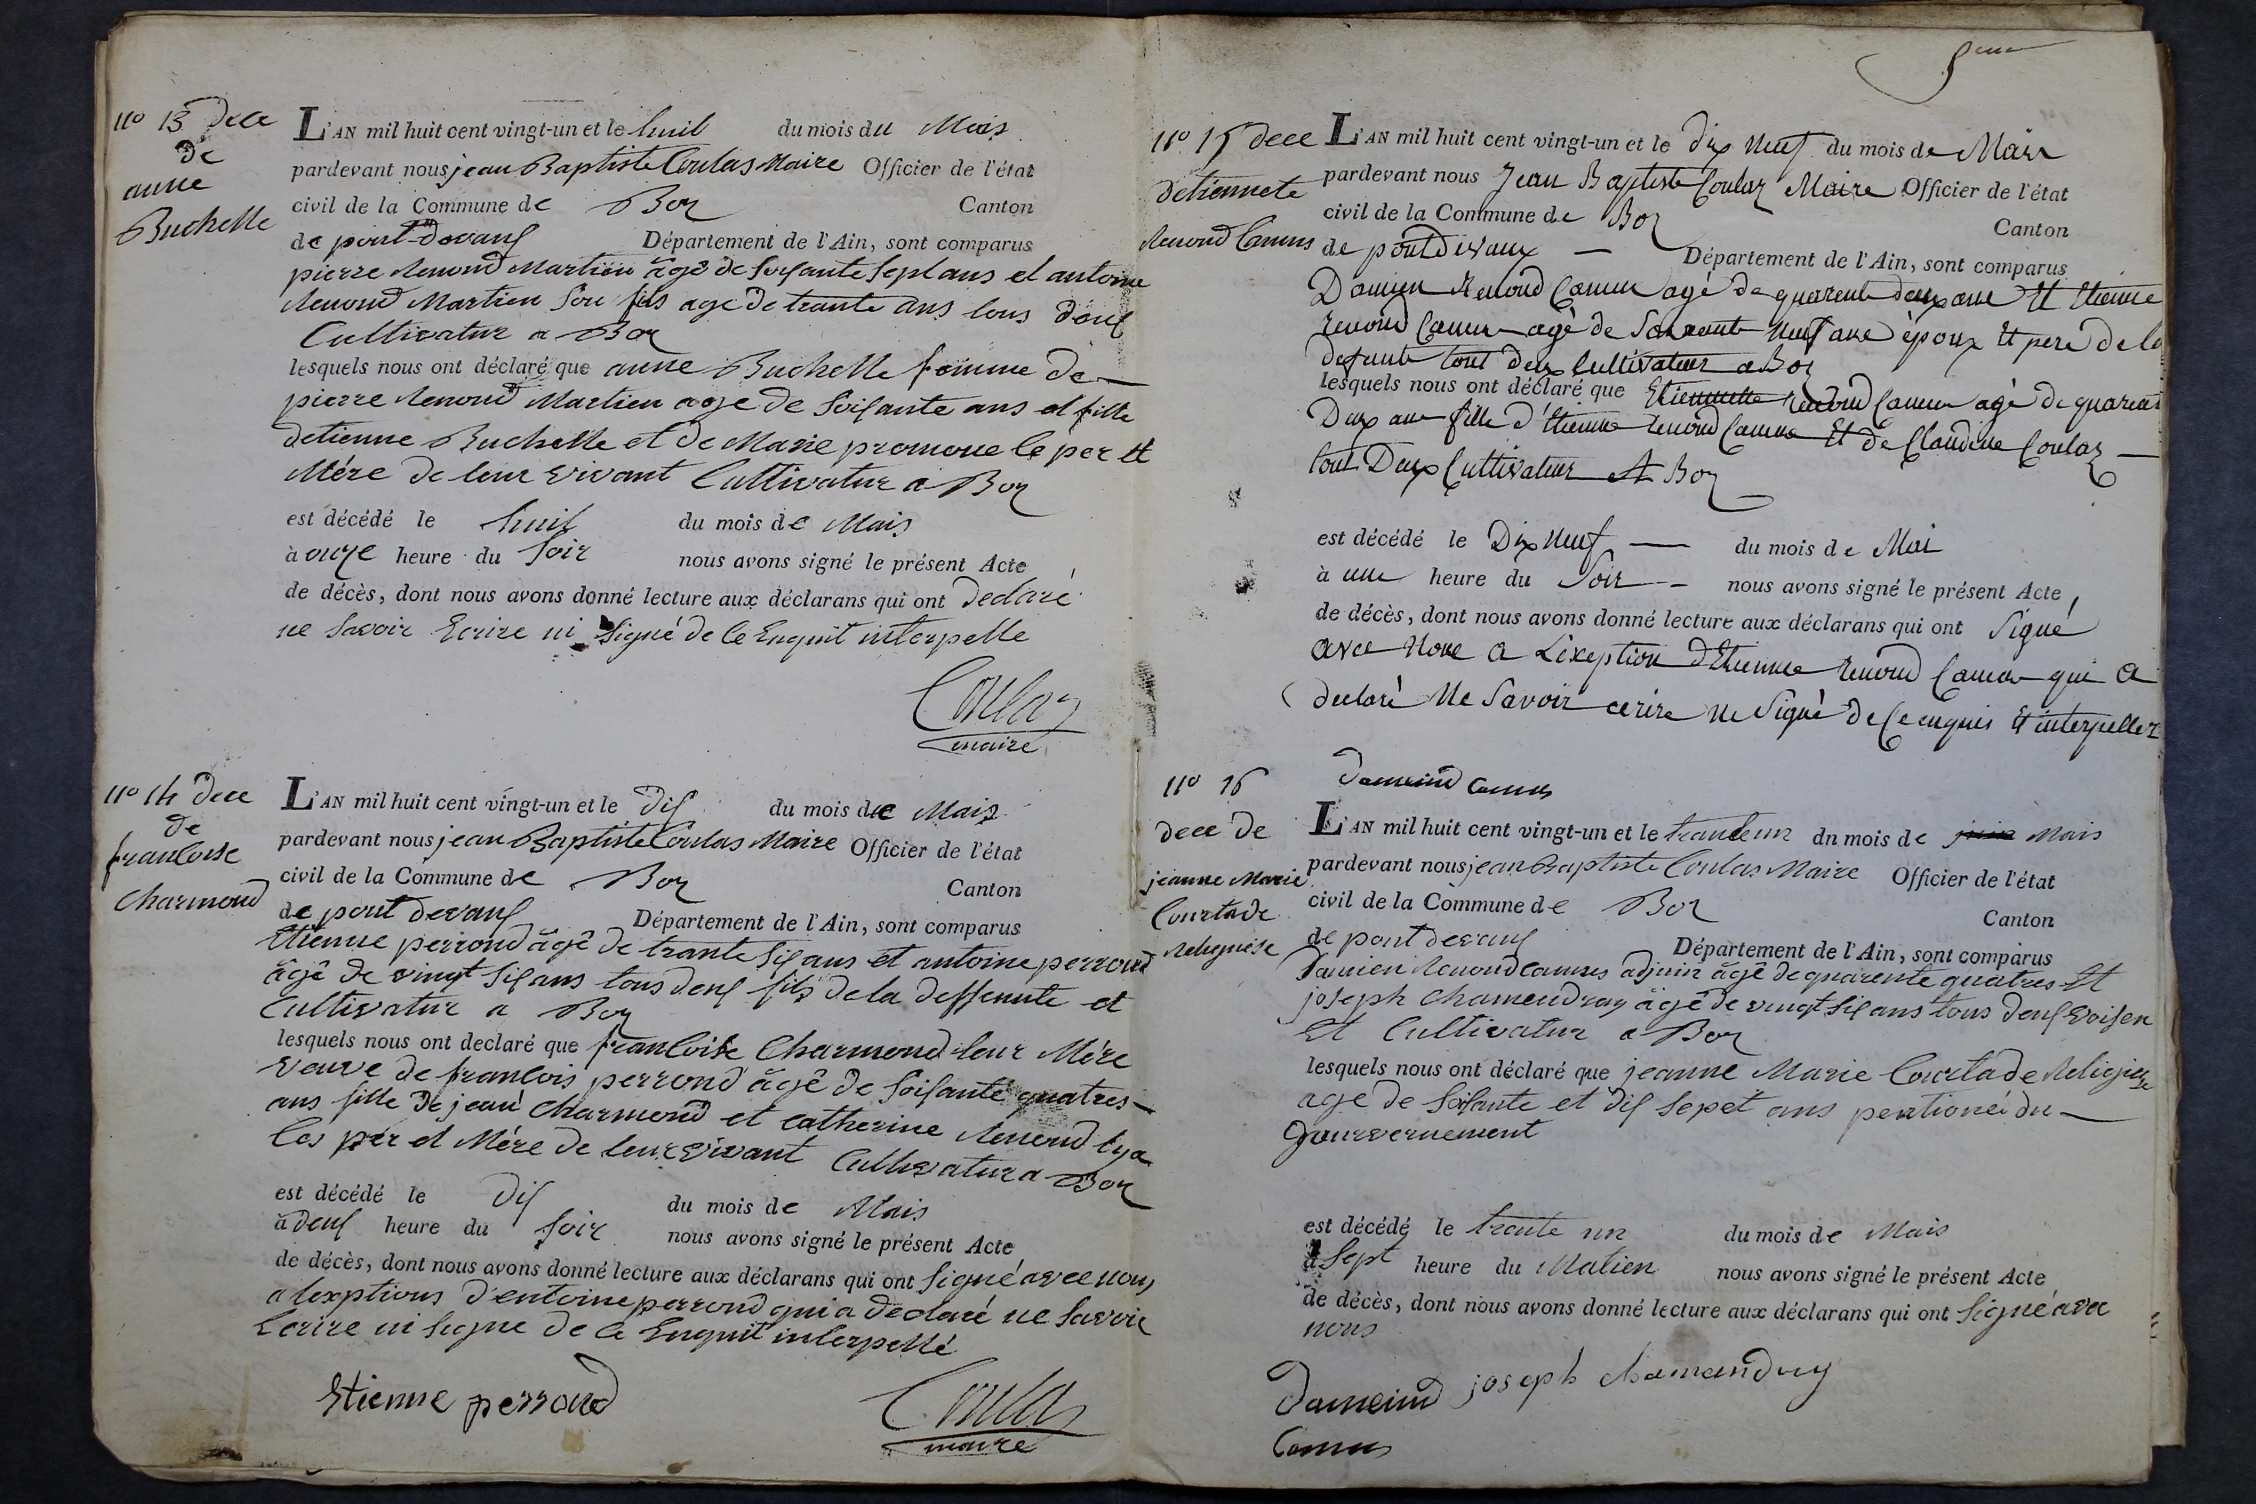 n.o 13 Dece
de
anne
Buchelle
L'AN mil huit cent vingt-un et le huit du mois du Mais
pardevant nous jean Baptiste Coulas Maire Officier de l'état
civil de la Commune de Boz Canton
de pont-devauſ Département de l'Ain, sont comparus
pierre Renoud Martien âgê de Soiſante Sept ans et antoine
Renoud Martien Son fils age de trante ans tous deuſ
Cultivatur a Boz
lesquels nous ont déclaré que anne Buchelle femme de
pierre Renoud Martien age de Soiſante ans et fille
detienne Buchelle et de Marie promone le per et
Mére de leur vivant Cultivatur a Boz
est décédé le huit du mois de Mais
à onze heure du Soir nous avons signé le présent Acte
de décès, dont nous avons donné lecture aux déclarans qui ont declaré
ne Savoir Ecrire ni Signé de Ce Enquit interpelle
Coulaz
maire
n.o 14 Dece
de
francoise
Charmond
L'AN mil huit cent vingt-un et le diſ du mois de Mais
pardevant nous jean Baptiste Coulas Maire Officier de l'état
civil de la Commune de Boz Canton
de pont devauſ Département de l'Ain, sont comparus
Etienne perroud âgê de trante Siſ ans et antoine perroud
âgê de vingt Siſ ans tous deuſ fils de la deffeunte et
Cultivatur a Boz
lesquels nous ont declaré que francoise Charmond leur Mére
veuve de francois perroud âgê de Soiſante quatres
ans fille de jean Charmond et catherine Renoud lya
les pér et Mére de leur vivant Cultivatur a Boz
est décédé le diſ du mois de Mais
à deuſ heure du Soir nous avons signé le présent Acte
de décès, dont nous avons donné lecture aux déclarans qui ont Signé avec nous
a lexptions d'entoine perroud qui a déclaré ne Savoir
Ecrire ni Signe de Ce Enquit interpellé
Etienne perroud
Coulaz
maire
5eme
n.o 15 dece
detiennete
Renoud Camus
L'AN mil huit cent vingt-un et le dix neuf du mois de Mais
pardevant nous Jean Baptiste Coulaz Maire Officier de l'état
civil de la Commune de Boz Canton
de pontdevaux Département de l'Ain, sont comparus
Damien Renoud Camus agé de quarente deux ans Et Etienne
Renoud Camus agé de Soixante neuf ans époux Et pere de la
defunte tout deux Cultivateur a Boz
lesquels nous ont déclaré que Etiennette Renoud Camus agé de quarente
Deux ans fille d'Etienne Renoud Camus Et de Claudine Coulaz
tout Deux Cultivateur A Boz
est décédé le Dix neuf du mois de Mai
à une heure du Soir nous avons signé le présent Acte
de décès, dont nous avons donné lecture aux déclarans qui ont Signé
avec Nous a Lexeption d'Etienne Renoud Camus qui a
declaré Ne Savoir ecrire ne Signé de Ce enquis Et interpeller
Dameind Camus
n.o 16
dece de
jeanne Marie
Courtade
Religuise
L'AN mil huit cent vingt-un et le trante un du mois de juin Mais
pardevant nous jean Baptiste Coulas Maire Officier de l'état
civil de la Commune de Boz Canton
de pont devauſ Département de l'Ain, sont comparus
Damien Renoud camus adjuin âgê de quarente quatres Et
joseph chamendray âgê de vingt Siſ ans tous deuſ voisen
Et Cultivatur a Boz
lesquels nous ont déclaré que jeanne Marie Courtade Religieuse
age de Soiſante et diſ Sepet ans pentioné du
Gourvernement
est décédé le trente un du mois de Mais
à Sept heure du Matien nous avons signé le présent Acte
de décès, dont nous avons donné lecture aux déclarans qui ont Signé avec
nous
Dameind joseph chamanduy
Camus